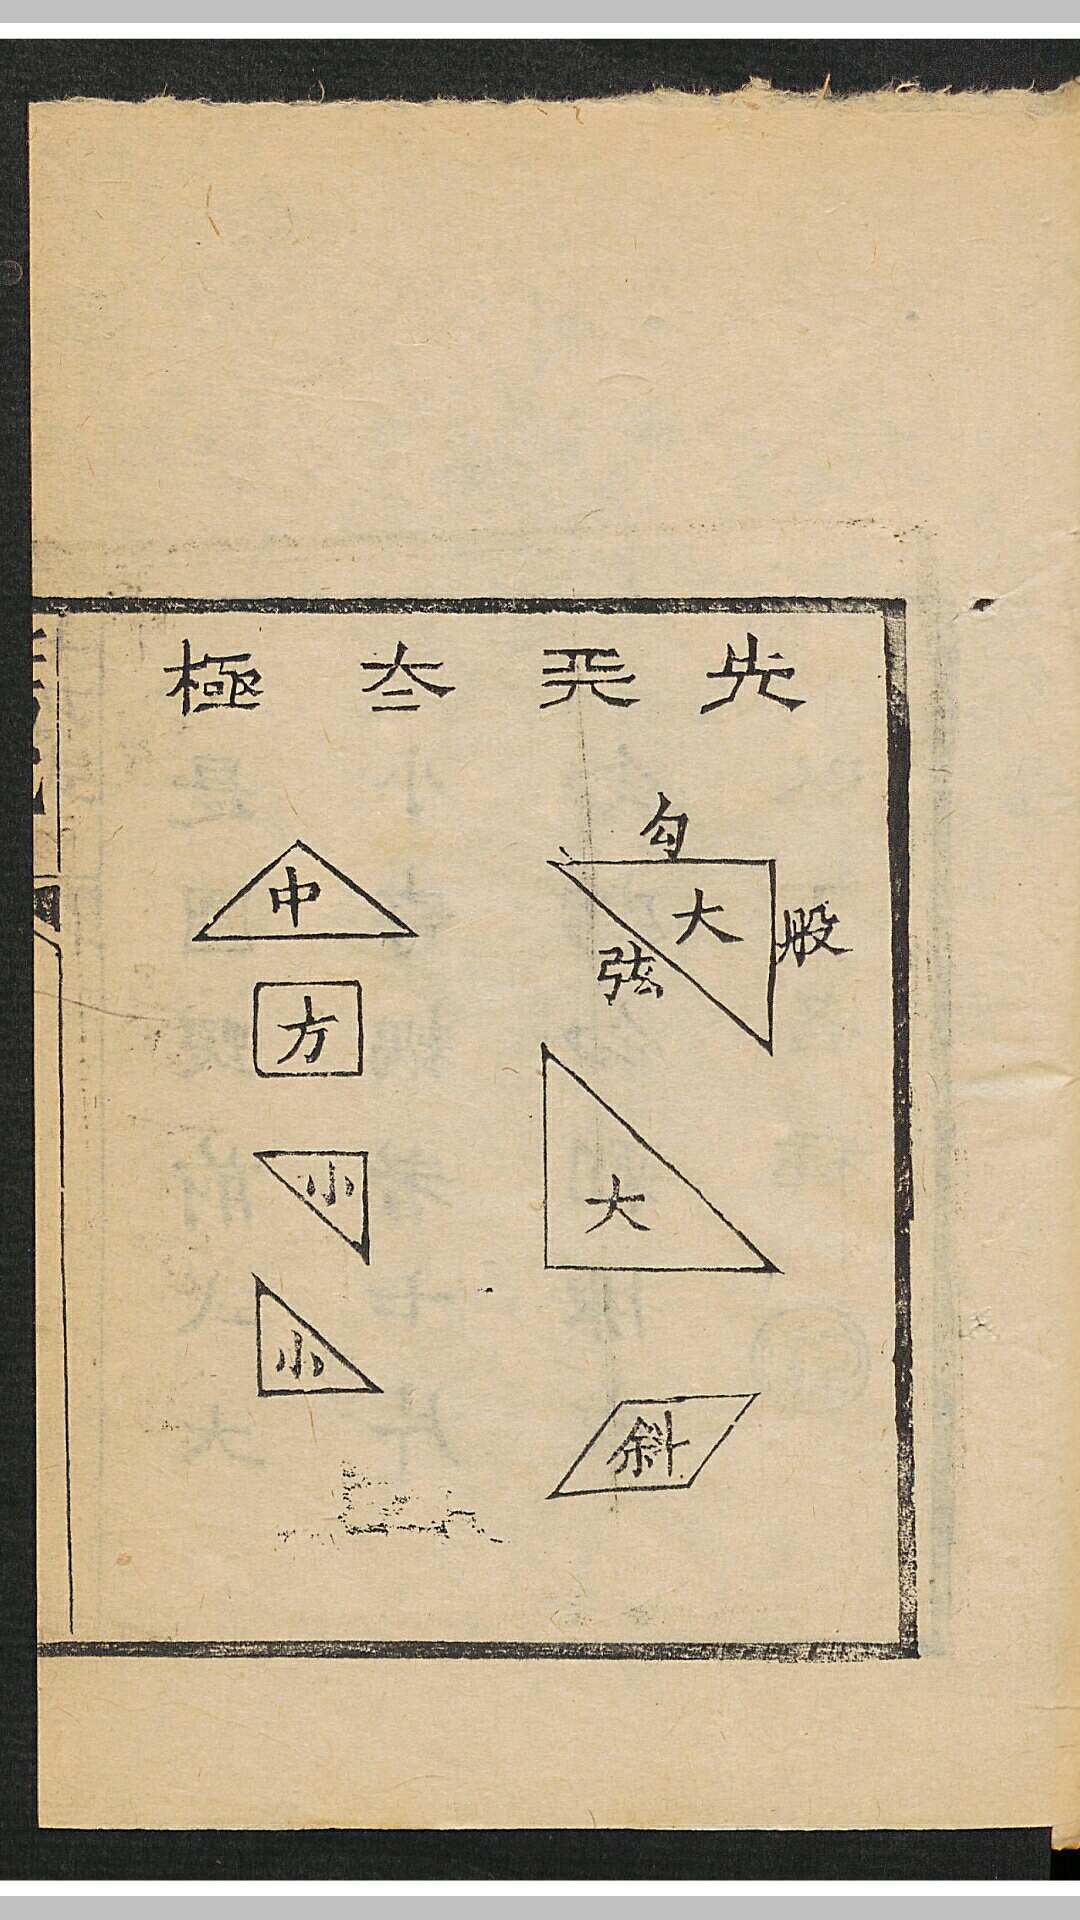 先天太極
勾
大
股
弦
大
斜
中
方
小
小